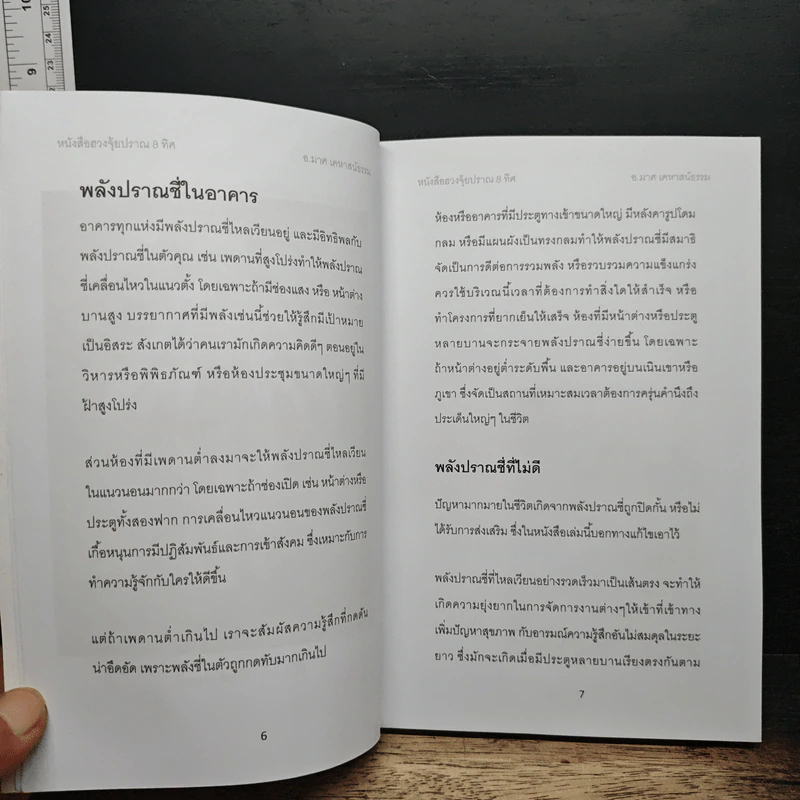 10
9
25
24
23
22
หนังสือฮวงจุ้ยปราณ 8 ทิศ
อ.มาศ เคหาสน์ธรรม
พลังปราณชี่ในอาคาร
อาคารทุกแห่งมีพลังปราณชี่ไหลเวียนอยู่ และมีอิทธิพลกับ
พลังปราณชี่ในตัวคุณ เช่น เพดานที่สูงโปร่งทำให้พลังปราณ
ชี่เคลื่อนไหวในแนวตั้ง โดยเฉพาะถ้ามีช่องแสง หรือ หน้าต่าง
บานสูง บรรยากาศที่มีพลังเช่นนี้ช่วยให้รู้สึกมีเป้าหมาย
เป็นอิสระ สังเกตได้ว่าคนเรามักเกิดความคิดดีๆ ตอนอยู่ใน
วิหารหรือพิพิธภัณฑ์ หรือห้องประชุมขนาดใหญ่ๆ ที่มี
ฝ้าสูงโปร่ง
ส่วนห้องที่มีเพดานต่ำลงมาจะให้พลังปราณชี่ไหลเวียน
ในแนวนอนมากกว่า โดยเฉพาะถ้าช่องเปิด เช่น หน้าต่างหรือ
ประตูทั้งสองฟาก การเคลื่อนไหวแนวนอนของพลังปราณชี่
เกื้อหนุนการมีปฏิสัมพันธ์และการเข้าสังคม ซึ่งเหมาะกับการ
ทำความรู้จักกับใครให้ดีขึ้น
แต่ถ้าเพดานต่ำเกินไป เราจะสัมผัสความรู้สึกที่กดดัน
น่าอึดอัด เพราะพลังชี่ในตัวถูกกดทับมากเกินไป
6
หนังสือฮวงจุ้ยปราณ 8 ทิศ
อ.มาศ เคหาสน์ธรรม
ห้องหรืออาคารที่มีประตูทางเข้าขนาดใหญ่ มีหลังคารูปโดม
กลม หรือมีแผนผังเป็นทรงกลมทำให้พลังปราณชี่มีสมาธิ
จัดเป็นการดีต่อการรวมพลัง หรือรวบรวมความแข็งแกร่ง
ควรใช้บริเวณนี้เวลาที่ต้องการทำสิ่งใดให้สำเร็จ หรือ
ทำโครงการที่ยากเย็นให้เสร็จ ห้องที่มีหน้าต่างหรือประตู
หลายบานจะกระจายพลังปราณชี่ง่ายขึ้น โดยเฉพาะ
ถ้าหน้าต่างอยู่ต่ำระดับพื้น และอาคารอยู่บนเนินเขาหรือ
ภูเขา ซึ่งจัดเป็นสถานที่เหมาะสมเวลาต้องการครุ่นคำนึงถึง
ประเด็นใหญ่ๆ ในชีวิต
พลังปราณชี่ที่ไม่ดี
ปัญหามากมายในชีวิตเกิดจากพลังปราณชี่ถูกปิดกั้น หรือไม่
ได้รับการส่งเสริม ซึ่งในหนังสือเล่มนี้บอกทางแก้ไขเอาไว้
พลังปราณชี่ที่ไหลเวียนอย่างรวดเร็วมาเป็นเส้นตรง จะทำให้
เกิดความยุ่งยากในการจัดการงานต่างๆให้เข้าที่เข้าทาง
เพิ่มปัญหาสุขภาพ กับอารมณ์ความรู้สึกอันไม่สมดุลในระยะ
ยาว ซึ่งมักจะเกิดเมื่อมีประตูหลายบานเรียงตรงกันตาม
7